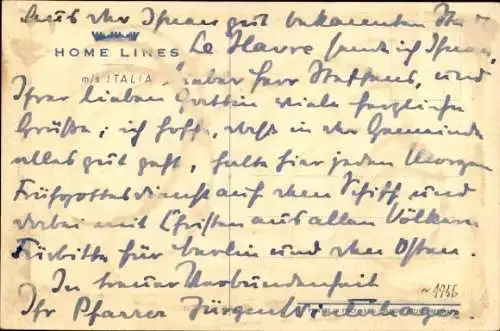 Aus der Ihnen gut bekannten Stadt
HOME LINES
Le Havre sende ich Ihnen,
m/s ITALIA
lieber Herr Steffens, und
Ihrer lieben Gattin viele herzliche
Grüße; ich hoffe, dass in der Gemeinde
alles gut geht, halte hier jeden Morgen
Frühgottesdienst auf dem Schiff und
dabei mit Christen aus allen Völkern
Fürbitte für Berlin und den Osten.
In treuer Verbundenheit
~1946
Ihr Pfarrer Jürgen